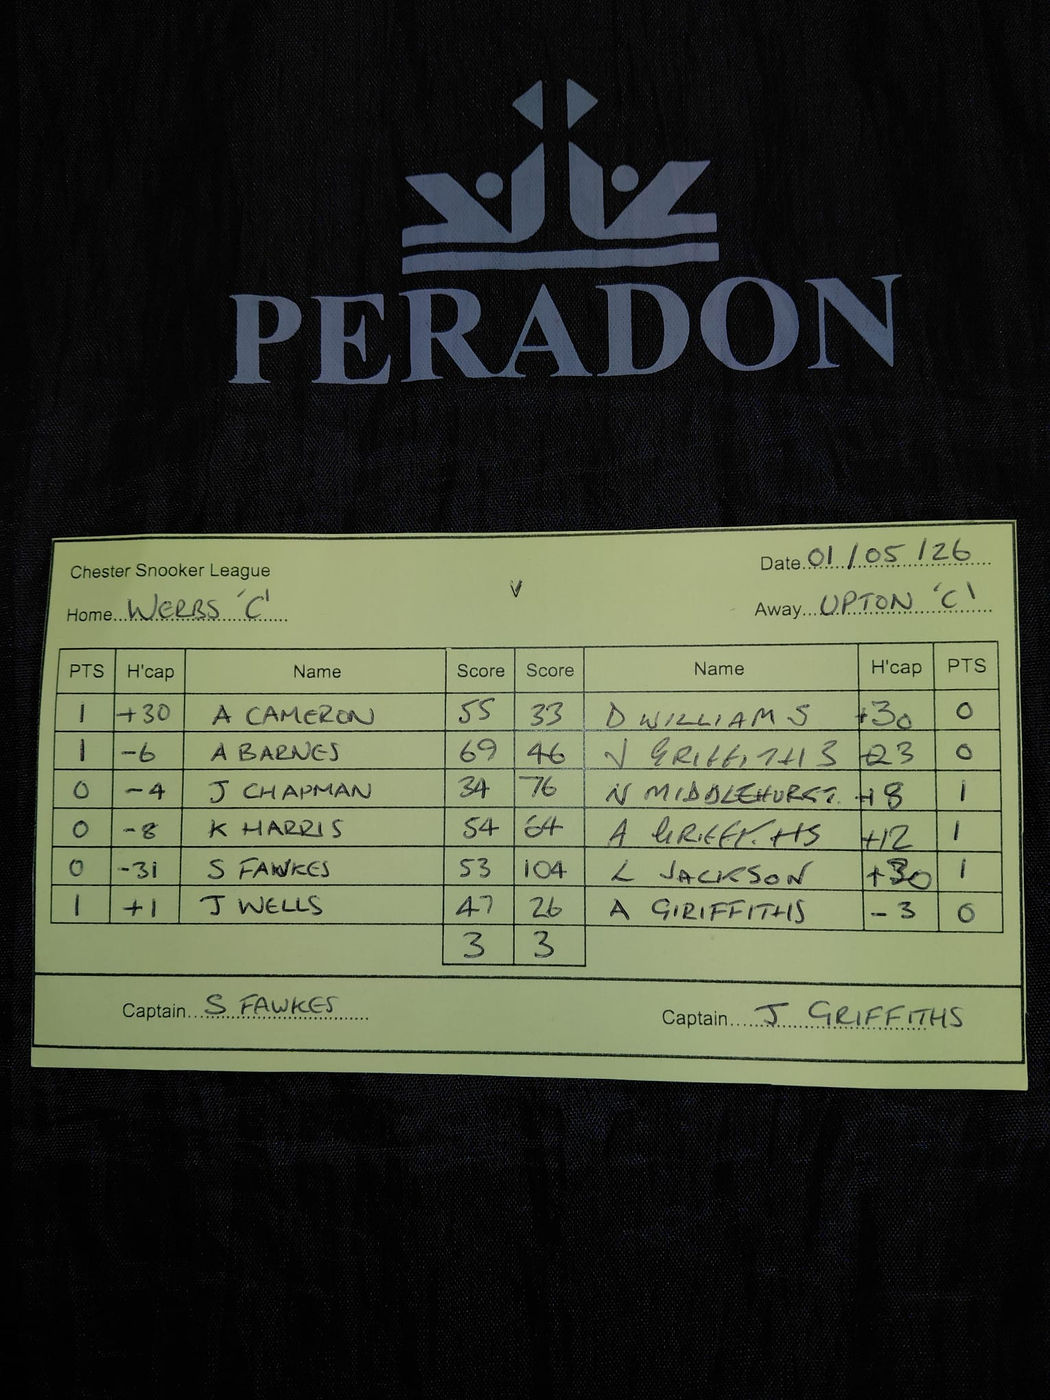 PERADON
Chester Snooker League
Date 01/05/26
v
Home WERBS 'C'
Away UPTON 'C'
PTS H'cap Name Score Score Name H'cap PTS
1 +30 A CAMERON 55 33 D WILLIAMS +30 0
1 -6 A BARNES 69 46 J GRIFFITHS +23 0
0 -4 J CHAPMAN 34 76 N MIDDLEHURST +8 1
0 -8 K HARRIS 54 64 A GRIFFITHS +12 1
0 -31 S FAWKES 53 104 L JACKSON +30 1
1 +1 J WELLS 47 26 A GIRIFFITHS -3 0
3 3
Captain S FAWKES
Captain J GRIFFITHS